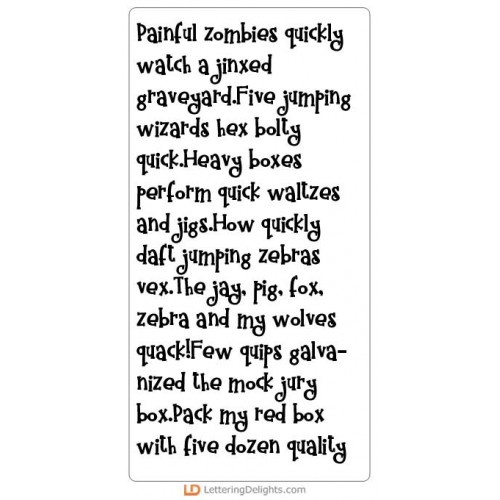 Painful zombies quickly
watch a jinxed
graveyard.Five jumping
wizards hex bolty
quick.Heavy boxes
perform quick waltzes
and jigs.How quickly
daft jumping zebras
vex.The jay, pig, fox,
zebra and my wolves
quack!Few quips galva-
nized the mock jury
box.Pack my red box
with five dozen quality
LD LetteringDelights.com